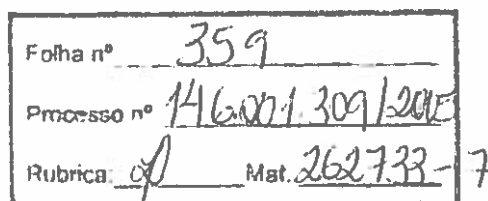 Folha nº 359
Processo nº 146.001.309/2015
Rubrica: Mat. 262733-7